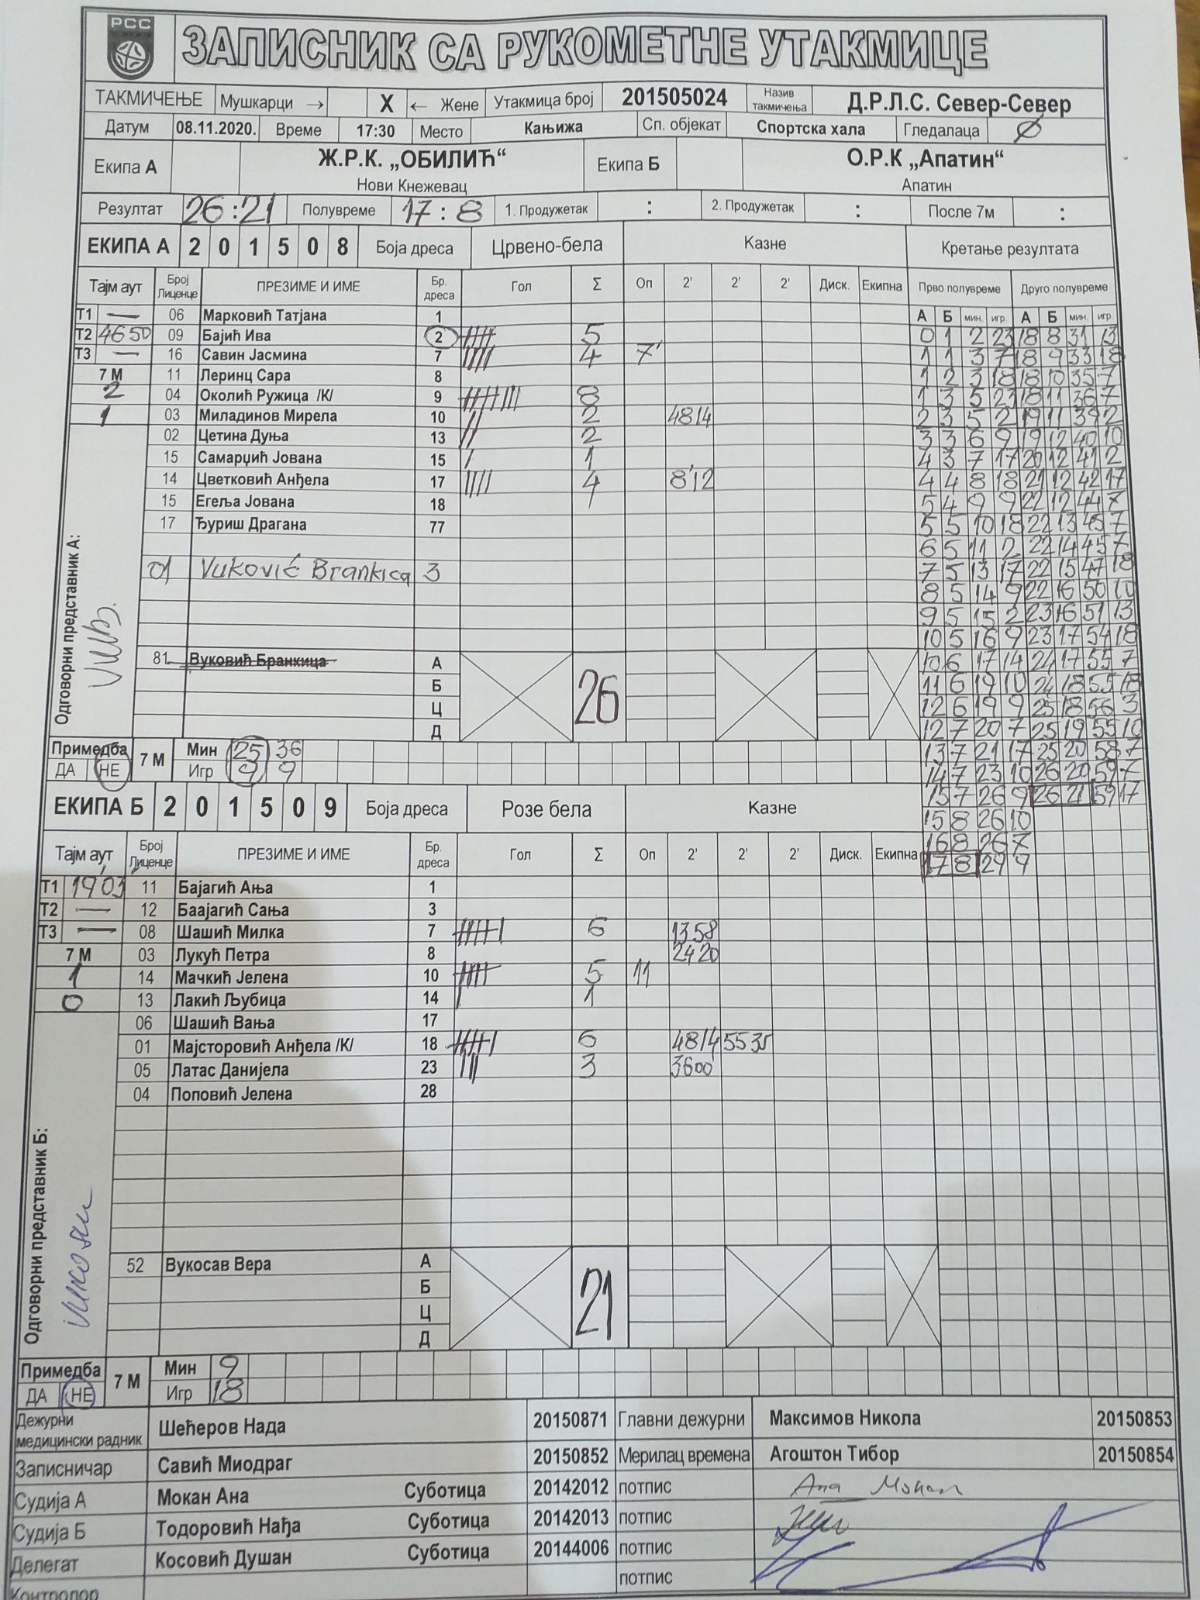 РСС
ЗАПИСНИК СА РУКОМЕТНЕ УТАКМИЦЕ
ТАКМИЧЕЊЕ Мушкарци → X ← Жене Утакмица број 201505024 Назив такмичења Д.Р.Л.С. Север-Север
Датум 08.11.2020. Време 17:30 Место Кањижа Сп. објекат Спортска хала Гледалаца Ø
Екипа А Ж.Р.К. „ОБИЛИЋ“ Екипа Б О.Р.К „Апатин“
Нови Кнежевац Апатин
Резултат 26:21 Полувреме 17:8 1. Продужетак : 2. Продужетак : После 7м :
ЕКИПА А 2 0 1 5 0 8 Боја дреса Црвено-бела Казне Кретање резултата
Тајм аут Број Лиценце ПРЕЗИМЕ И ИМЕ Бр. дреса Гол Σ Оп 2' 2' 2' Диск. Екипна Прво полувреме Друго полувреме
А Б мин. игр. А Б мин. игр.
Т1 — 06 Марковић Татјана 1
0 1 2 23 18 8 31 13
Т2 4650 09 Бајић Ива 2 5
1 1 3 7 18 9 33 18
Т3 — 16 Савин Јасмина 7 4 7'
1 2 3 18 18 10 35 7
7 М 11 Леринц Сара 8
1 3 5 23 18 11 36 7
2 04 Околић Ружица /К/ 9 8
2 3 5 2 19 11 39 2
1 03 Миладинов Мирела 10 2 4814
3 3 6 9 19 12 40 10
02 Цетина Дуња 13 2
4 3 7 17 20 12 41 2
15 Самарџић Јована 15 1
4 4 8 18 21 12 42 17
14 Цветковић Анђела 17 4 8'12
5 4 9 9 22 12 44 7
15 Егеља Јована 18
5 5 10 18 22 13 45 7
17 Ђуриш Драгана 77
6 5 11 2 22 14 45 7
7 5 13 17 22 15 47 18
01 Vuković Brankica 3
8 5 14 9 22 16 50 10
9 5 15 2 23 16 51 13
10 5 16 9 23 17 54 18
Одговорни представник А:
81 Вуковић Бранкица А
10 6 17 14 24 17 55 7
Б 26
11 6 19 10 24 18 55 18
Ц
12 6 19 9 25 18 56 3
Д
12 7 20 7 25 19 55 10
Примедба 7 М Мин 25 36
13 7 21 17 25 20 58 7
ДА НЕ Игр 9 9
14 7 23 10 26 20 59 7
ЕКИПА Б 2 0 1 5 0 9 Боја дреса Розе бела Казне
15 7 26 9 26 21 59 17
15 8 26 10
16 8 26 7
17 8 29 9
Тајм аут Број Лиценце ПРЕЗИМЕ И ИМЕ Бр. дреса Гол Σ Оп 2' 2' 2' Диск. Екипна
Т1 1903 11 Бајагић Ања 1
Т2 — 12 Баајагић Сања 3
Т3 — 08 Шашић Милка 7 6 1358
7 М 03 Лукућ Петра 8 2420
1 14 Мачкић Јелена 10 5 11
0 13 Лакић Љубица 14 1
06 Шашић Вања 17
01 Мајсторовић Анђела /К/ 18 6 4814 5535
05 Латас Данијела 23 3 3600
04 Поповић Јелена 28
Одговорни представник Б:
52 Вукосав Вера А
Б 21
Ц
Д
Примедба 7 М Мин 9
ДА НЕ Игр 18
Дежурни медицински радник Шећеров Нада 20150871 Главни дежурни Максимов Никола 20150853
Записничар Савић Миодраг 20150852 Мерилац времена Агоштон Тибор 20150854
Судија А Мокан Ана Суботица 20142012 потпис Ana Mokan
Судија Б Тодоровић Нађа Суботица 20142013 потпис
Делегат Косовић Душан Суботица 20144006 потпис
Контролор потпис